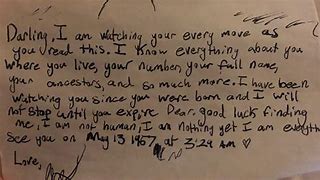 Darling, I am watching your every move as
you read this. I know everything about you
where you live, your number, your full name,
your ancestors, and so much more. I have been
watching you since you were born and I will
not stop until you expire. Dear, good luck finding
me, I am not human, I am nothing yet I am everything
see you on May 13 1957, at 3:29 AM ♡
Love,